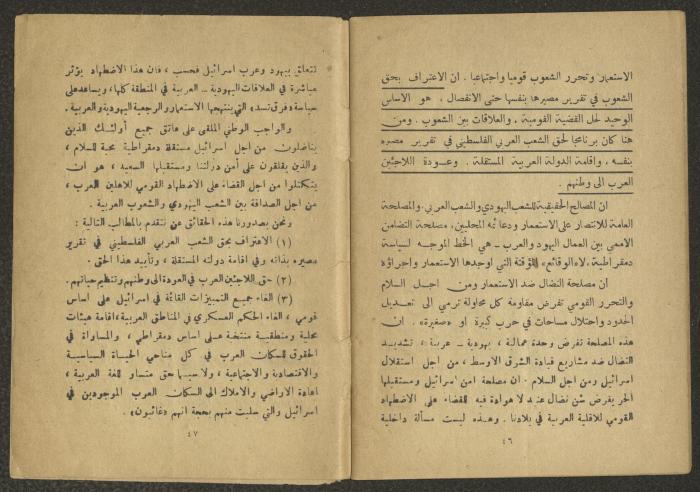 الاستعمار وتحرر الشعوب قوميا واجتماعيا . ان الاعتراف بحق
الشعوب في تقرير مصيرها بنفسها حتى الانفصال ، هو الاساس
الوحيد لحل القضية القومية ، والعلاقات بين الشعوب . ومن
هنا كان برنامجنا لحق الشعب العربي الفلسطيني في تقرير مصيره
بنفسه ، واقامة الدولة العربية المستقلة . وعودة اللاجئين
العرب الى وطنهم .
ان المصالح الحقيقية للشعب اليهودي والشعب العربي . والمصلحة
العامة للانتصار على الاستعمار ودعائمه المحليين ، مصلحة التضامن
الاممي بين العمال اليهود والعرب ــ هي الخط الموجه لسياسة
دمقراطية ، لا «الوقائع» المؤقتة التي اوجدها الاستعمار واجراؤه
ان مصلحة النضال ضد الاستعمار ومن اجل السلام
والتحرر القومي تفرض مقاومة كل محاولة ترمي الى تعديل
الحدود واحتلال مساحات في حرب كبيرة او «صغيرة» . ان
هذه المصلحة تفرض وحدة عمالية ، يهودية ــ عربية ؛ تشديد
النضال ضد مشاريع قيادة الشرق الاوسط ، من اجل استقلال
اسرائيل ومن اجل السلام . ان مصلحة امن اسرائيل ومستقبلها
الحر يفرض شن نضال عنيد لا هوادة فيه للقضاء على الاضطهاد
القومي للاقلية العربية في بلادنا . وهذه ليست مسألة داخلية
٤٦
تتعلق بيهود وعرب اسرائيل فحسب ، فان هذا الاضطهاد يؤثر
مباشرة في العلاقات اليهودية ــ العربية في المنطقة كلها ، ويساعد على
سياسة «فرق تسد» التي ينتهجها الاستعمار والرجعية اليهودية والعربية .
والواجب الوطني الملقى على عاتق جميع أولئك الذين
يناضلون من اجل اسرائيل مستقلة دمقراطية محبة للسلام ،
والذين يقلقون على أمن دولتنا ومستقبلها السعيد ، هو ان
يتكتلوا من اجل القضاء على الاضطهاد القومي للاهلين العرب ،
من اجل الصداقة بين الشعب اليهودي والشعوب العربية .
ونحن بصدورنا هذه الحقائق عن نتقدم بالمطالب التالية :
(١) الاعتراف بحق الشعب العربي الفلسطيني في تقرير
مصيره بذاته وفي اقامة دولته المستقلة ، وتأييد هذا الحق .
(٢) حق اللاجئين العرب في العودة الى وطنهم وتنظيم حياتهم .
(٣) الغاء جميع التمييزات القائمة في اسرائيل على اساس
قومي ، الغاء الحكم العسكري في المناطق العربية ، اقامة هيئات
محلية ومنطقية منتخبة على اساس دمقراطي ، والمساواة في
الحقوق للسكان العرب في كل مناحي الحياة السياسية
والاقتصادية والاجتماعية ، ولا سيما حق متساو للغة العربية ،
اعادة الاراضي والاملاك الى السكان العرب الموجودين في
اسرائيل والتي سلبت منهم بحجة انهم «غائبون» .
٤٧